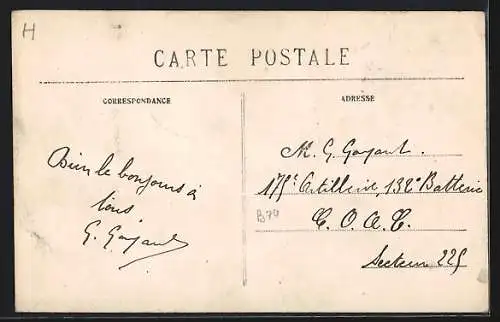 H
CARTE POSTALE
CORRESPONDANCE
ADRESSE
Bien le bonjours à
tous
G. Goyant
M. G. Goyant.
175e Artillerie, 132e Batterie
B74
C. O. A. C.
Secteur 225